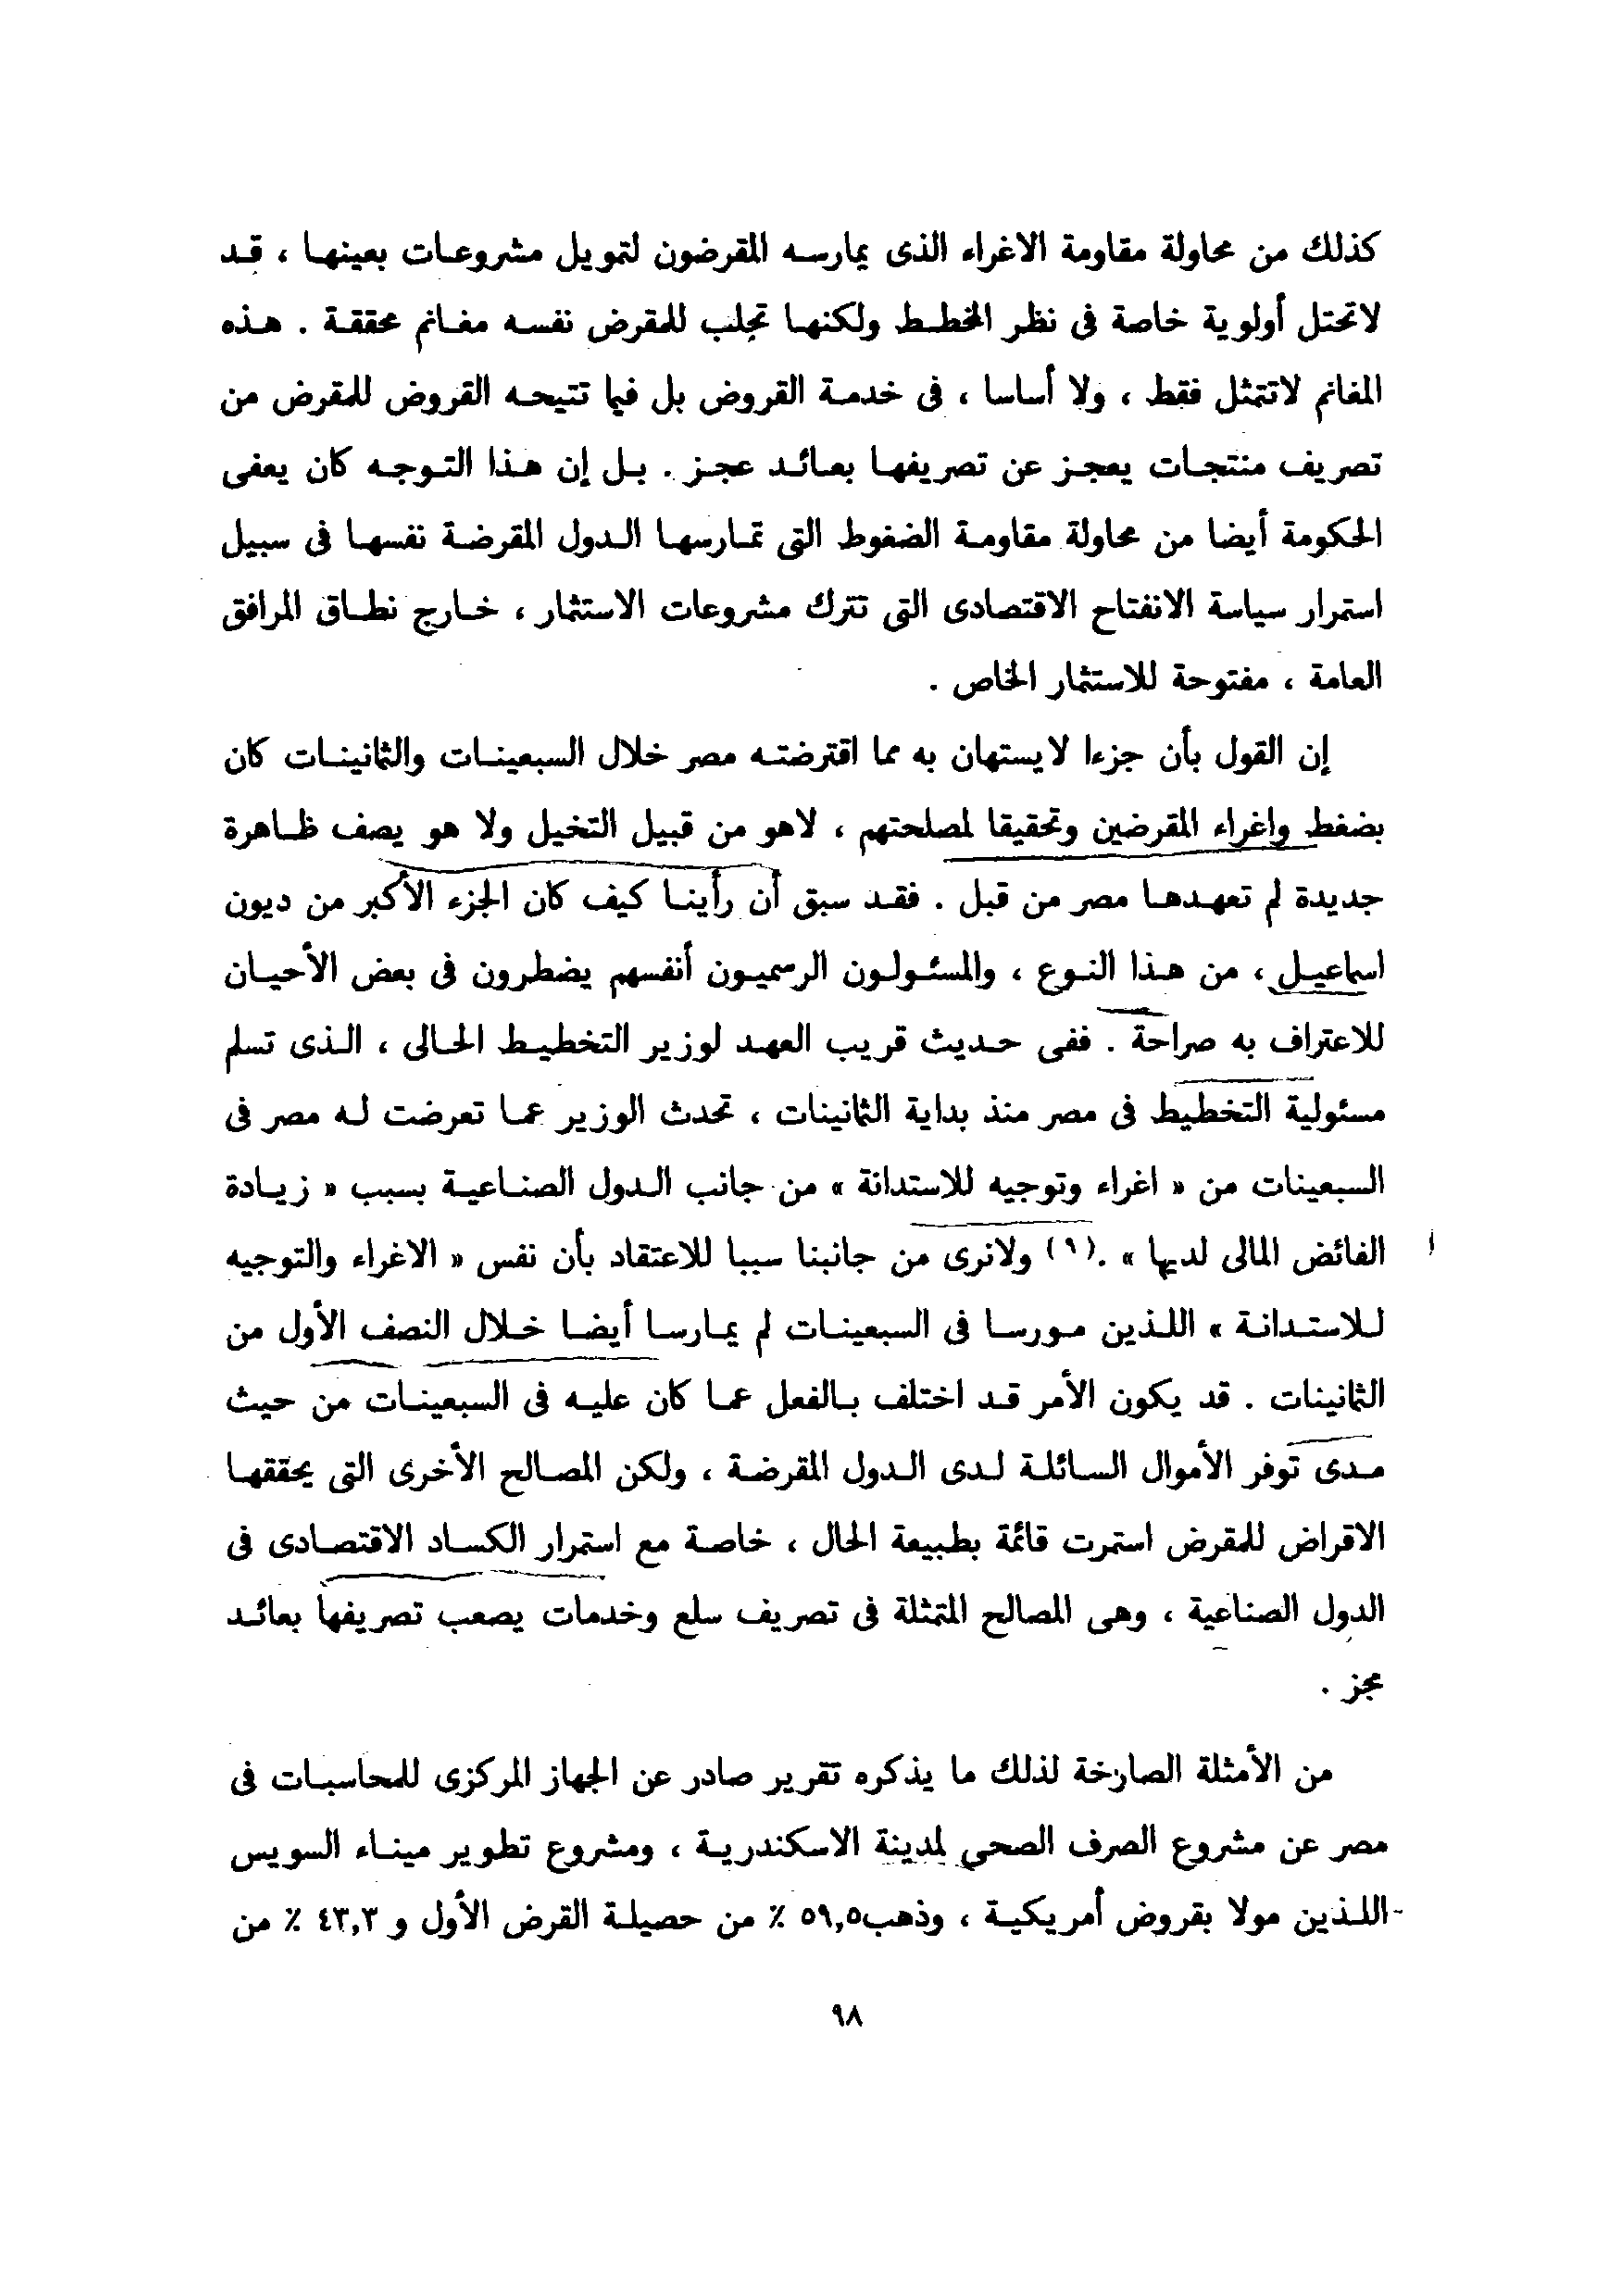 كذلك من محاولة مقاومة الاغراء الذى يمارسه المقرضون لتمويل مشروعات بعينها ، قد
لاتحتل أولوية خاصة فى نظر المخطط ولكنها تجلب للمقرض نفسه مغانم محققة . هذه
المغانم لاتتمثل فقط ، ولا أساسا ، فى خدمة القروض بل فيما تتيحه القروض للمقرض من
تصريف منتجات يعجز عن تصريفها بعائد مجز . بل إن هذا التوجه كان يعفى
الحكومة أيضا من محاولة مقاومة الضغوط التى تمارسها الدول المقرضة نفسها فى سبيل
استمرار سياسة الانفتاح الاقتصادى التى تترك مشروعات الاستثمار ، خارج نطاق المرافق
العامة ، مفتوحة للاستثمار الخاص .
إن القول بأن جزءا لايستهان به مما اقترضته مصر خلال السبعينات والثمانينات كان
بضغط واغراء المقرضين وتحقيقا لمصلحتهم ، لاهو من قبيل التخيل ولا هو يصف ظاهرة
جديدة لم تعهدها مصر من قبل . فقد سبق أن رأينا كيف كان الجزء الأكبر من ديون
اسماعيل ، من هذا النوع ، والمسئولون الرسميون أنفسهم يضطرون فى بعض الأحيان
للاعتراف به صراحة . ففى حديث قريب العهد لوزير التخطيط الحالى ، الذى تسلم
مسئولية التخطيط فى مصر منذ بداية الثمانينات ، تحدث الوزير عما تعرضت له مصر فى
السبعينات من « اغراء وتوجيه للاستدانة » من جانب الدول الصناعية بسبب « زيادة
الفائض المالى لديها » .(٩) ولانرى من جانبنا سببا للاعتقاد بأن نفس « الاغراء والتوجيه
للاستدانة » اللذين مورسا فى السبعينات لم يمارسا أيضا خلال النصف الأول من
الثمانينات . قد يكون الأمر قد اختلف بالفعل عما كان عليه فى السبعينات من حيث
مدى توفر الأموال السائلة لدى الدول المقرضة ، ولكن المصالح الأخرى التى يحققها
الاقراض للمقرض استمرت قائمة بطبيعة الحال ، خاصة مع استمرار الكساد الاقتصادى فى
الدول الصناعية ، وهى المصالح المتمثلة فى تصريف سلع وخدمات يصعب تصريفها بعائد
مجز .
من الأمثلة الصارخة لذلك ما يذكره تقرير صادر عن الجهاز المركزى للمحاسبات فى
مصر عن مشروع الصرف الصحي لمدينة الاسكندرية ، ومشروع تطوير ميناء السويس
اللذين مولا بقروض أمريكية ، وذهب٥٩,٥ ٪ من حصيلة القرض الأول و ٤٣,٣ ٪ من
٩٨